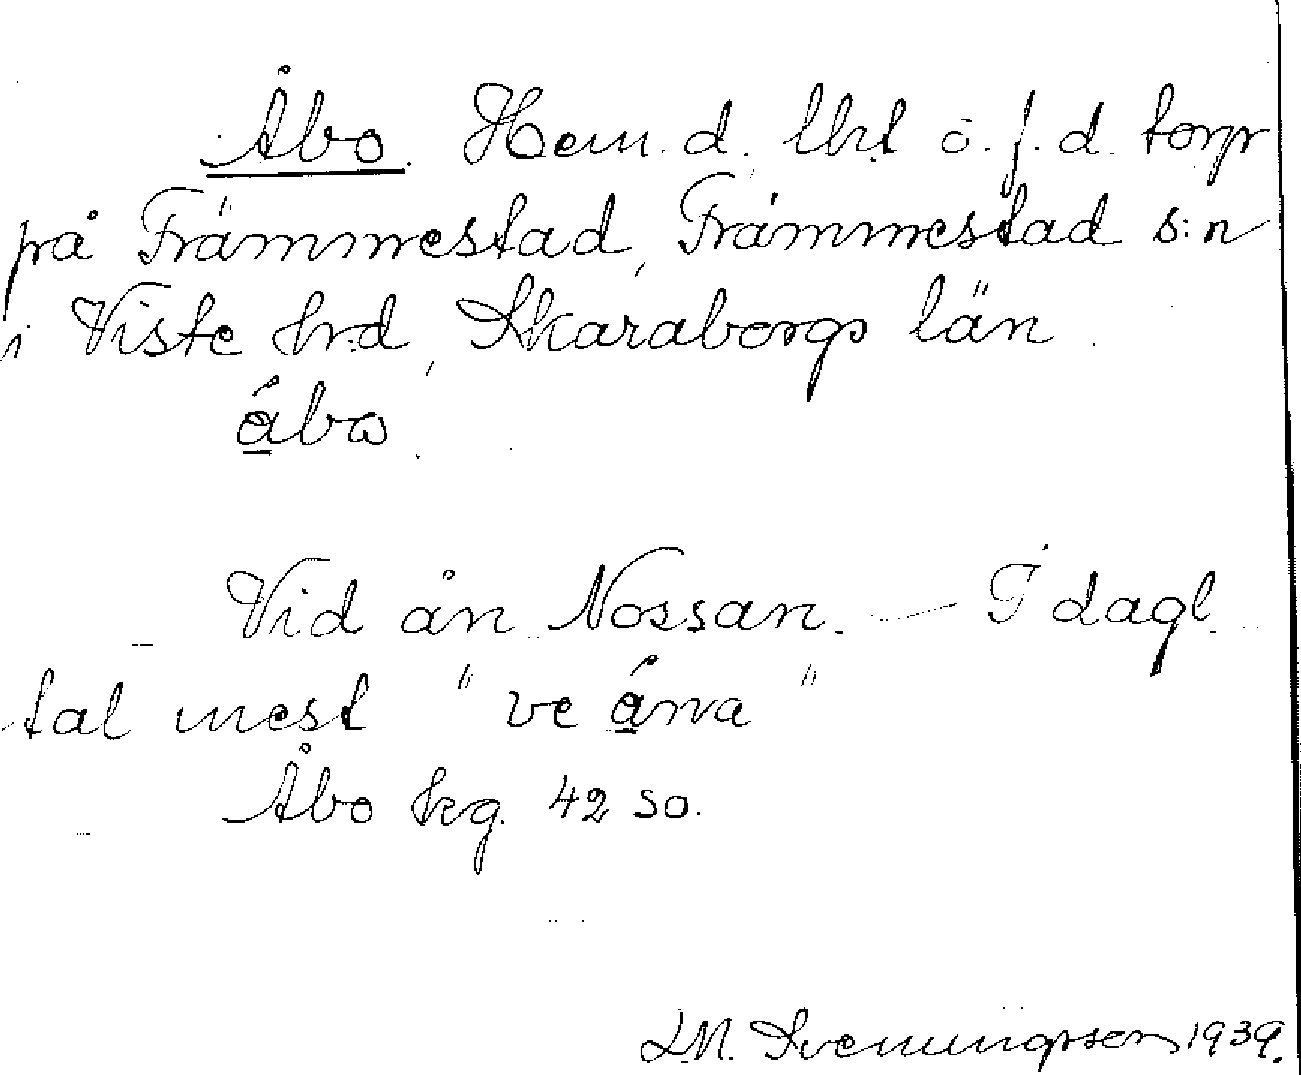 Åbo. Hem. d. lht o. f. d. torp
på Främmestad, Främmestad s:n
i Viste hrd, Skaraborgs län.
åbo.
Vid ån Nossan. — I dagl.
tal mest "ve åna"
Åbo kg. 42 so.
L.M. Svenningsson 1939.